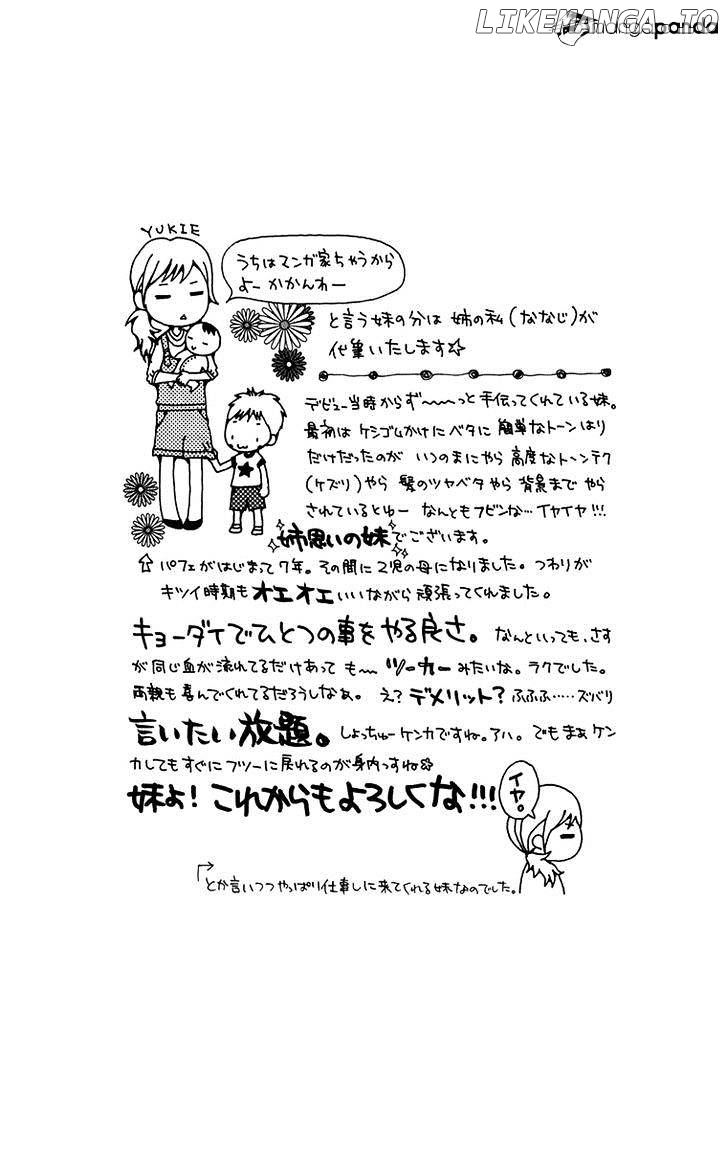 LIKEMANGA.IO
mangapanda
YUKIE
うちはマンガ家ちゃうから
よー かかんわー
と言う妹の分は 姉の私(ななじ)が
代筆いたします☆
デビュー当時からず〜〜〜っと手伝ってくれている妹。
最初は ケシゴムかけにベタに 簡単なトーンはり
だけだったのが いつのまにやら 高度なトーンテク
(ケズリ)やら 髪のツヤベタやら 背景まで やら
されているとゆー なんともフビンな…イヤイヤ!!!
姉思いの妹でございます。
⇧ パフェがはじまって7年。その間に2児の母になりました。つわりが
キツイ時期も オエオエ いいながら頑張ってくれました。
キョーダイでひとつの事をやる良さ。 なんといっても、さす
が同じ血が流れてるだけあって も〜〜 ツーカーみたいな。ラクでした。
両親も喜んでくれてるだろうしなぁ。 え?デメリット?ふふふ……ズバリ
言いたい放題。しょっちゅーケンカですね。アハ。 でもまぁケン
カしてもすぐにフツーに戻れるのが身内っすね☆
妹よ! これからもよろしくな!!!
イヤ。
とか言いつつやっぱり仕事しに来てくれる妹なのでした。